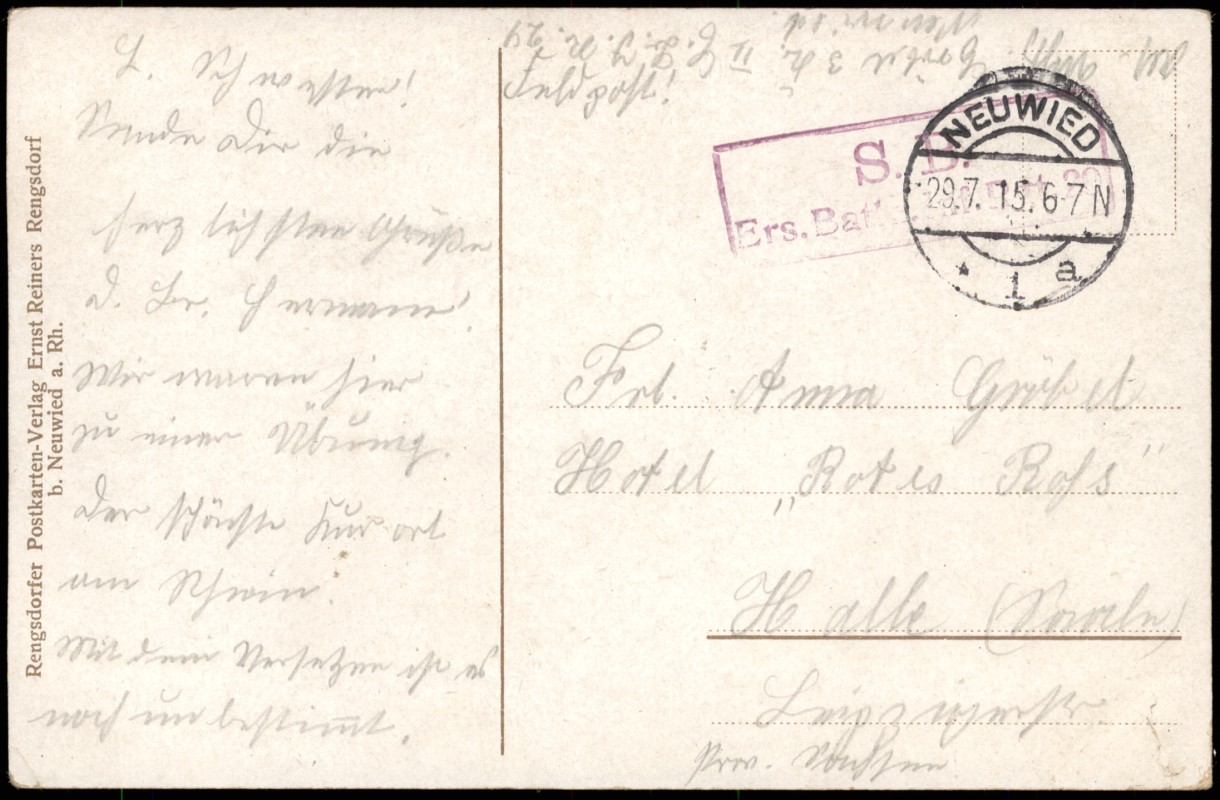 L. Schwester!
Sende Dir die
herzlichsten Grüße
d. Br. Hermann!
Wir waren hier
zu einer Übung.
Der schönste Kurort
am Rhein.
Mit dem Versetzen ist es
noch unbestimmt.
Rengsdorfer Postkarten-Verlag Ernst Reiners Rengsdorf
b. Neuwied a. Rh.
Gröbel 3 II
Neuwied.
Feldpost!
S. B.
Ers. Batl.
NEUWIED
29.7.15.6-7N
* 1 a
Frl. Anna Gröbel
Hotel „Rotes Roß"
Halle (Saale)
Leipzigerstr.
Prov. Sachsen